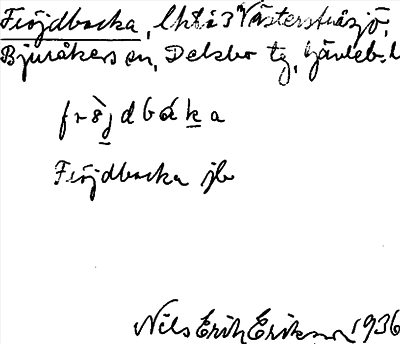 Fröjdbacka, lht i 3 Västerstråsjö,
Bjuråkers sn, Delsbo tg, Gävleb. l
fröjdbáka
Fröjdbacka jb
Nils Erik Erikson 1936